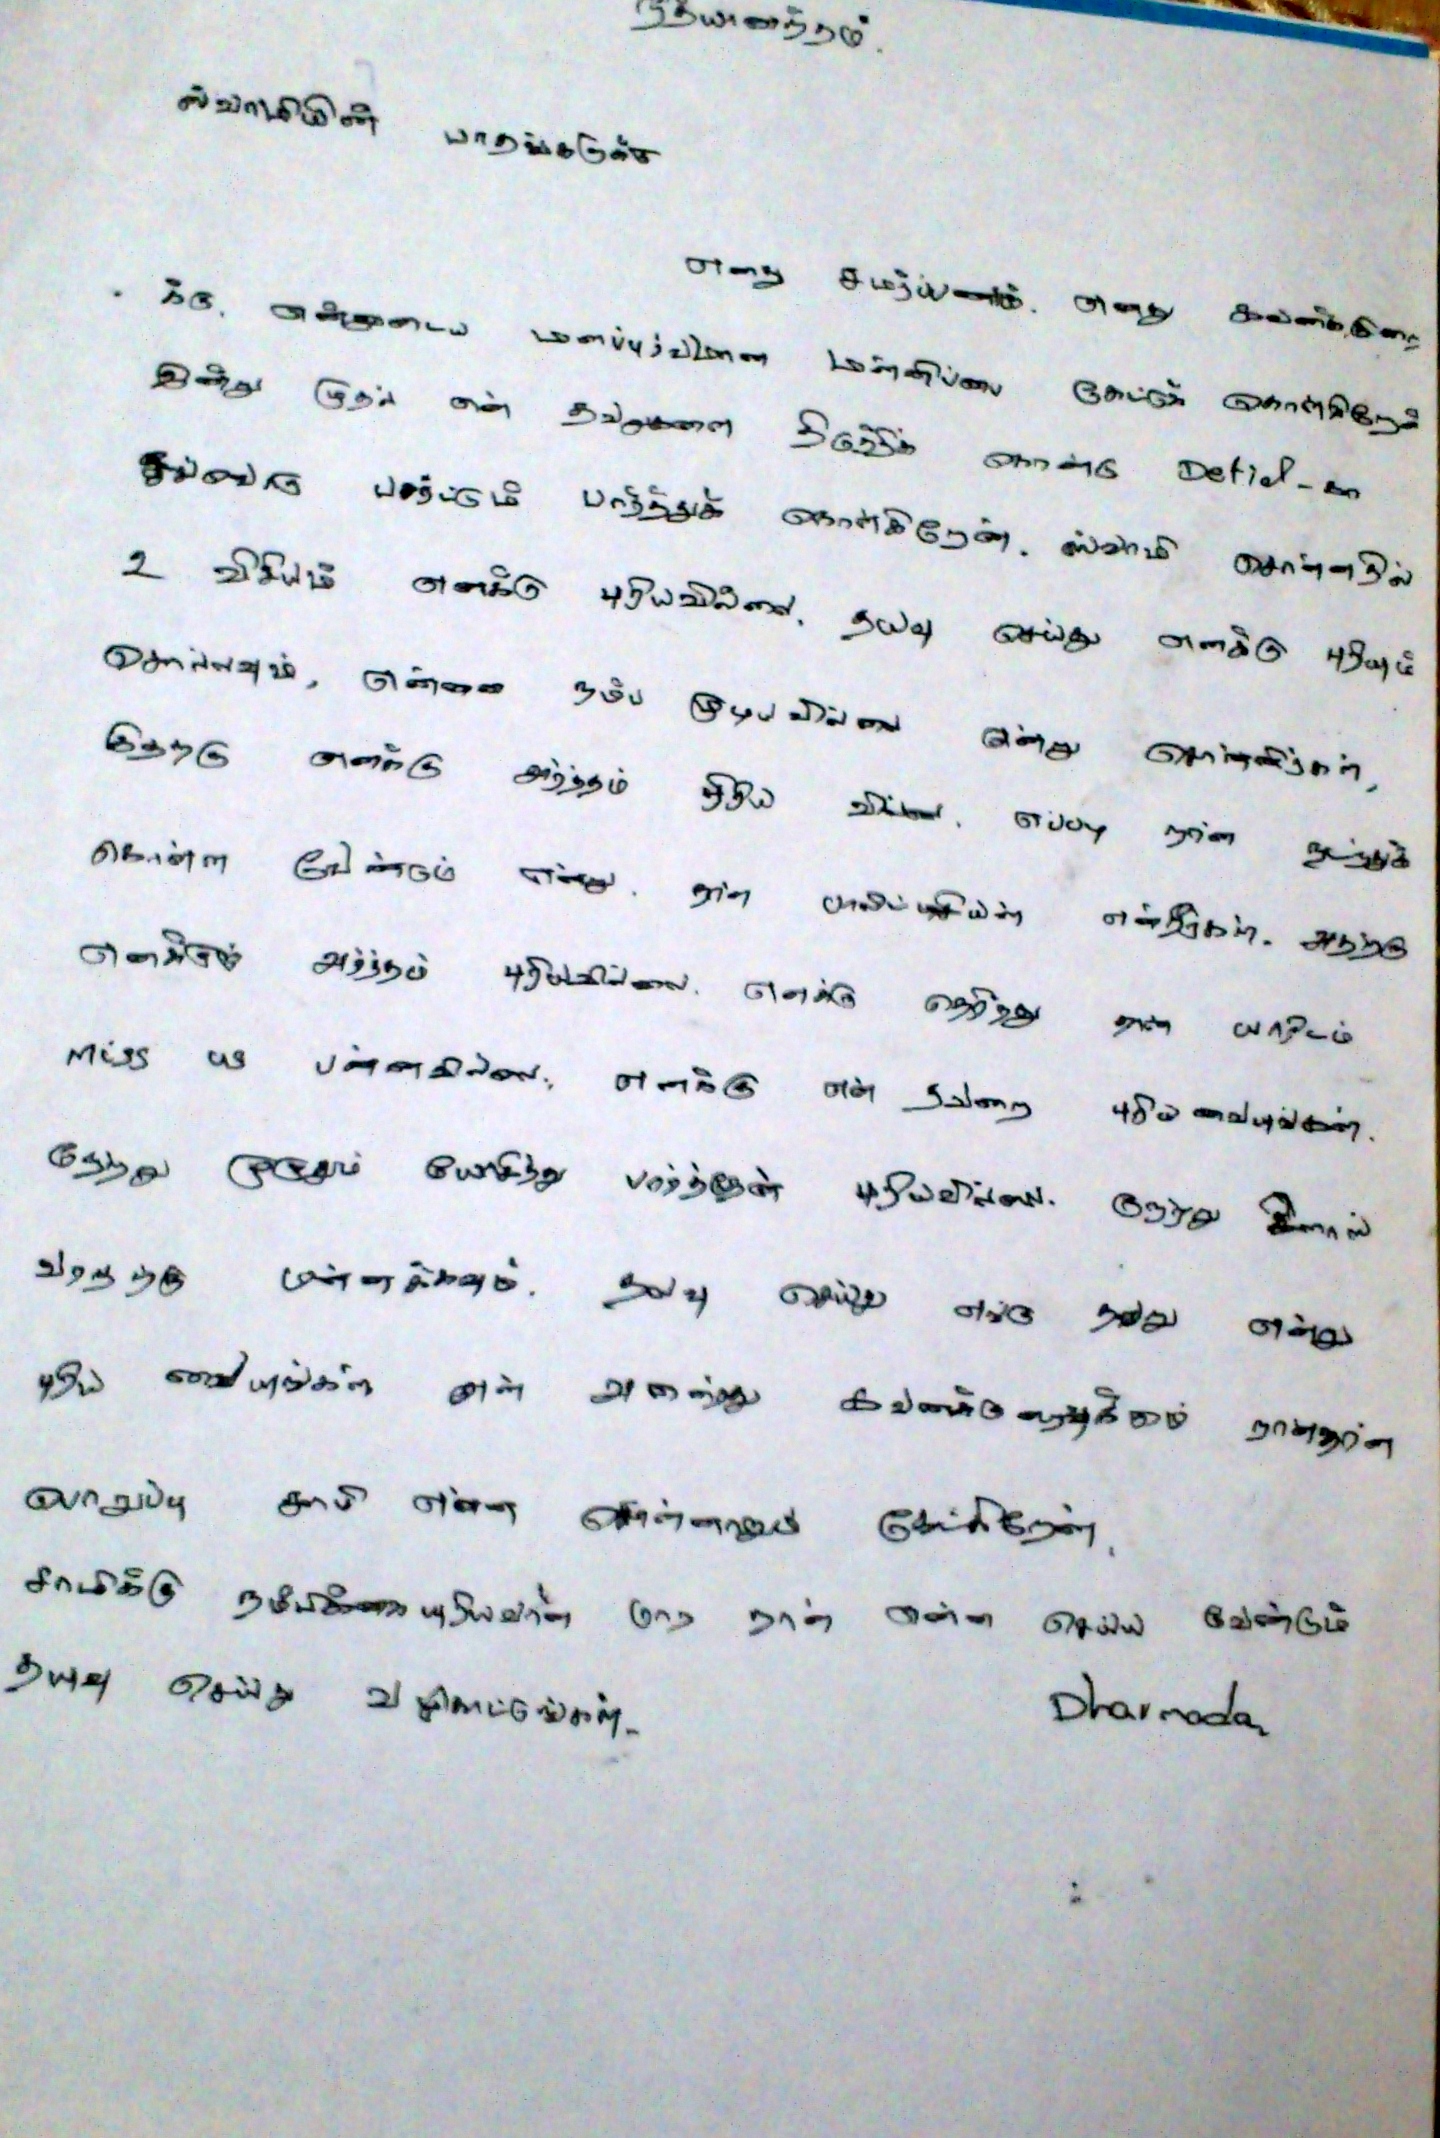 நித்யானந்தம்.
ஸ்வாமியின் பாதங்களுக்கு
எனது சமர்ப்பணம். எனது கவனக்குறை
க்கு. என்னுடைய மனப்பூர்வமான மன்னிப்பை கேட்டுக் கொள்கிறேன்
இன்று முதல் என் தவறுகளை திருத்திக் கொண்டு Detiel-கா
பார்த்துக் கொள்கிறேன். ஸ்வாமி சொன்னதில்
2 விசியம் எனக்கு புரியவில்லை. தயவு செய்து எனக்கு புரியும்
சொல்லவும், என்னை நம்ப முடியவில்லை என்று சொன்னீர்கள்,
இதற்கு எனக்கு அர்த்தம் விலலை. எப்படி நான் நடந்துக்
கொள்ள வேண்டும் என்று. நான் என்றீர்கள். அதற்கு
எனக்கு அர்த்தம் புரியவில்லை. எனக்கு தெரிந்து நான் யாரிடம்
miss us பன்னவில்லை. எனக்கு என் தவறை புரிய வையுங்கள்.
நேற்று முழுதும் யோசித்து பார்த்தேன் புரியவில்லை. நேற்று
வரதற்கு மன்னக்கவும். தயவு செய்து எங்கு தவறு என்று
புரிய வையுங்கள் என் அனைத்து நான்தான்
பொறுப்பு சாமி என்ன சொன்னாலும் கேட்கிறேன்.
சாமிக்கு மாற நான் என்ன செய்ய வேண்டும்
தயவு செய்து வழிகாட்டுங்கள். Dharmada